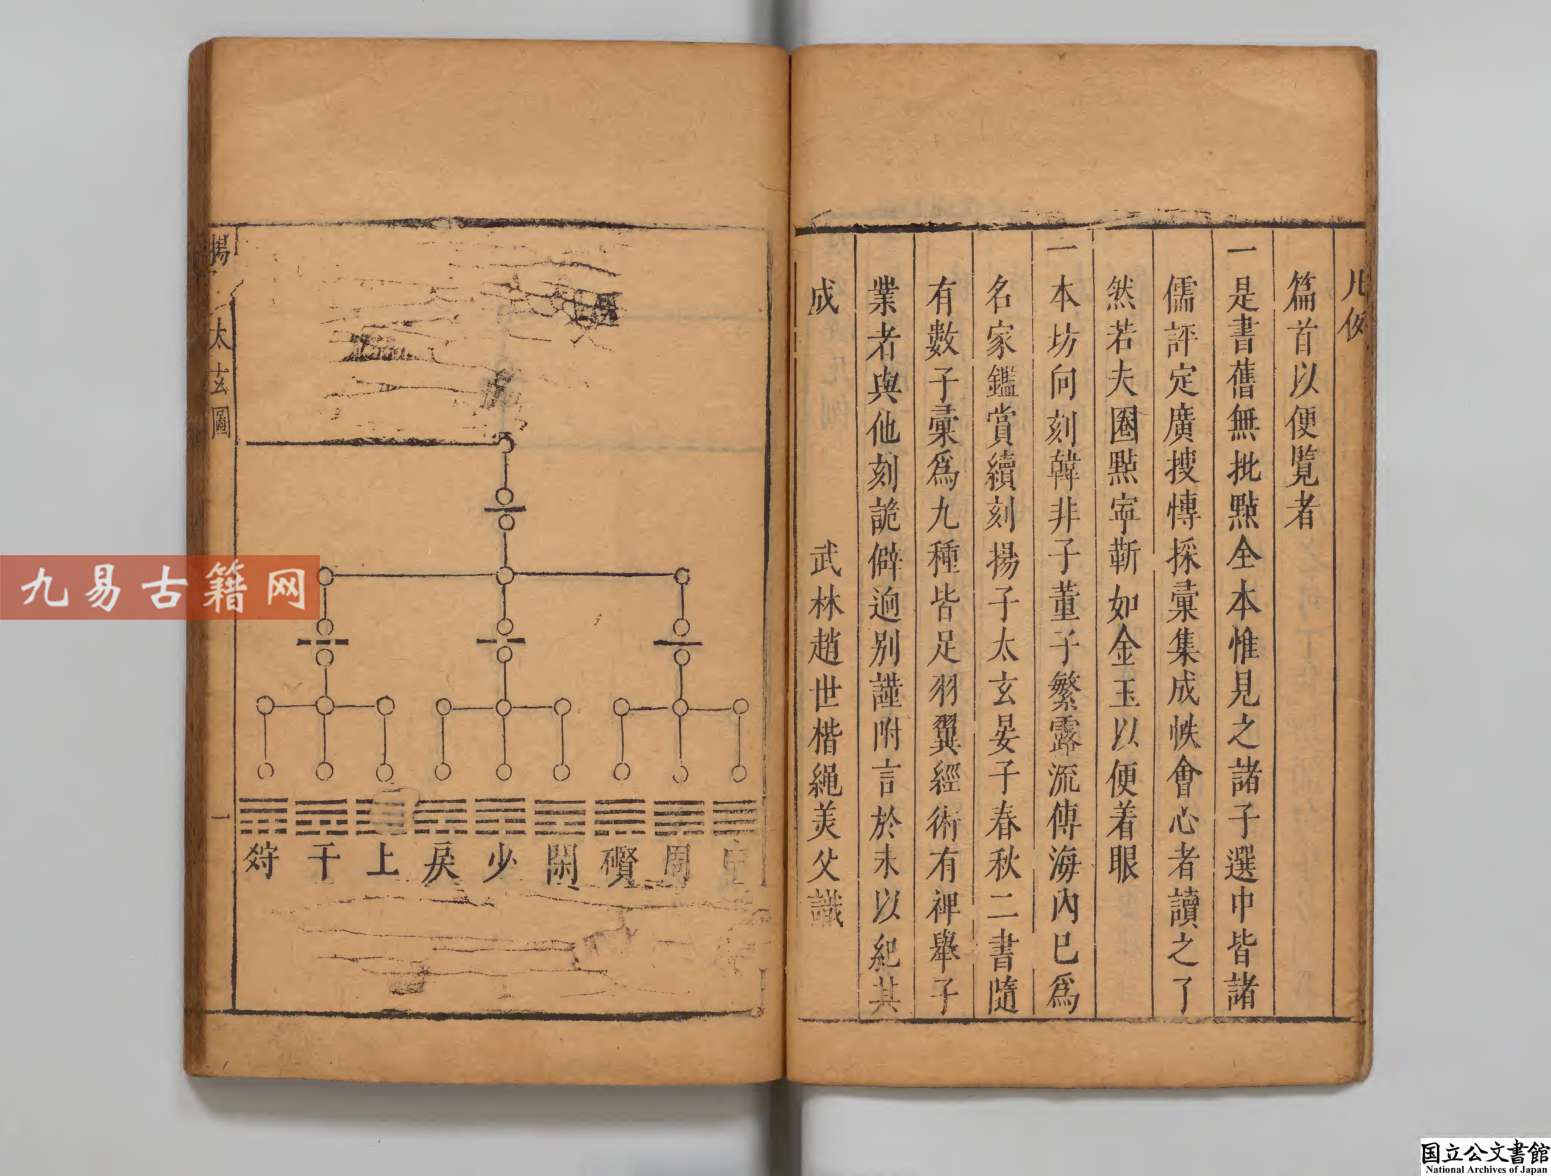 凡例
篇首以便覧者
一是書舊無批點全本惟見之諸子選中皆諸
儒評定廣搜博採彙集成帙會心者讀之了
然若夫圈點寜靳如金玉以便着眼
一本坊向刻韓非子董子繁露流傳海內已爲
名家鑑賞續刻揚子太玄晏子春秋二書隨
有數子彙爲九種皆足羽翼經術有裨舉子
業者與他刻詭僻逈別謹附言於末以紀其
成
武林趙世楷繩美父識
揚
太玄圖
一
周
礥
閑
少
戾
上
干
㝈
九易古籍网
国立公文書館
National Archives of Japan